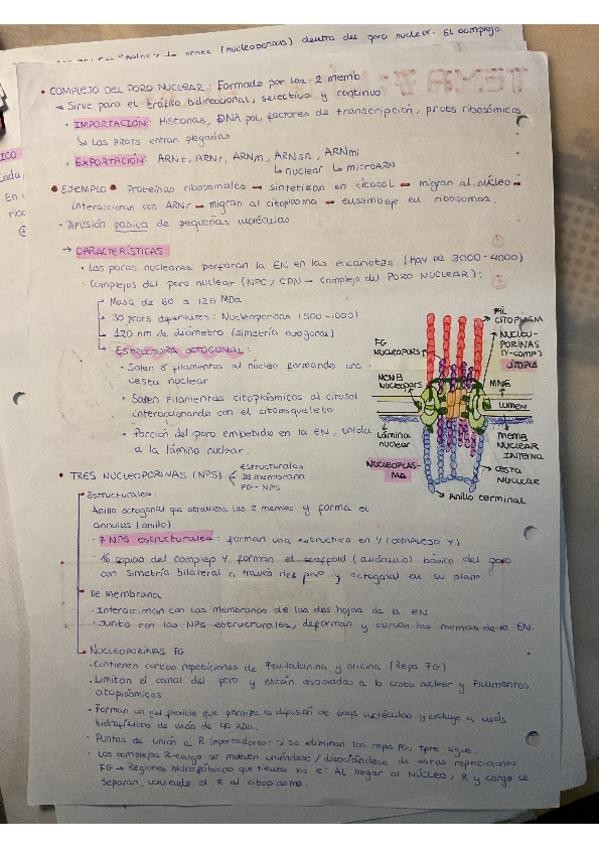 (nucleoporinas) dentro del poro nuclear. El complejo
• COMPLEJO DEL PORO NUCLEAR: Formado por las 2 memb
→ Sirve para el tráfico bidireccional, selectivo y continuo
• IMPORTACIÓN: Histonas, DNA pol, factores de transcripción, prots ribosómicas
↳ Las PROTS entran plegadas
• EXPORTACIÓN: ARNt, ARNr, ARNm, ARNsn, ARNmi
↳ nuclear ↳ microARN
• EJEMPLO • Proteínas ribosomales → sintetizan en citosol → migran al núcleo →
interaccionan con ARNr → migran al citoplasma → ensamblaje en ribosomas.
· Difusión pasiva de pequeñas moléculas
→ CARACTERÍSTICAS:
• Los poros nucleares perforan la EN en las eucariotas (Hay de 3000-4000)
• Complejos del poro nuclear (NPC / CPN → Complejo del PORO NUCLEAR):
Masa de 60 a 125 MDa
30 prots diferentes: Nucleoporinas (500-1000)
120 nm de diámetro (simetría octogonal)
ESTRUCTURA OCTOGONAL:
• Salen 8 filamentos al núcleo formando una
cesta nuclear
• Salen Filamentos citoplásmicos al citosol
interaccionando con el citoesqueleto
• Porción del poro embebido en la EN, unida
a la lámina nuclear.
FIL
CITOPLASM
FG
NUCLEOPORS
NUCLEO-
PORINAS
(Y-comp)
CITOPLAS
MEMB
NUCLEOPORS
MNE
LUMEN
Lámina
nuclear
MEMB
NUCLEAR
INTERNA
NUCLEOPLAS-
MA
CESTA
NUCLEAR
Anillo terminal
• TRES NUCLEOPORINAS (NPS)
Estructurales
De membrana
FG - NPS
Estructurales:
Anillo octogonal que atraviesa las 2 membs y forma el
annulus (anillo)
• 7 NPS estructurales: forman una estructura en Y (COMPLEJO Y)
• 16 copias del complejo Y forman el scaffold (andamio) básico del poro
con simetría bilateral a través del poro y octogonal en su plano
De membrana
• Interaccionan con las membranas de las dos hojas de la EN
• Junto con las NPS estructurales, deforman y curvan las membs de la EN.
NUCLEOPORINAS FG
• Contienen cortas repeticiones de Fenilalanina y Glicina (Reps FG)
• Limitan el canal del poro y están asociadas a la cesta nuclear y Filamentos
citoplásmicos.
• Forman un gel flexible que permite la difusión de peqs moléculas y excluye a mols
hidrofílicas de más de 40 KDa.
• Puntos de unión a R importadores: si se eliminan las reps FG,
• Los complejos R-cargo se mueven uniéndose / disociándose de estas repeticiones
FG → Regiones hidrofóbicas que Al llegar al NÚCLEO, R y cargo se
separan, volviendo el R al citoplasma.